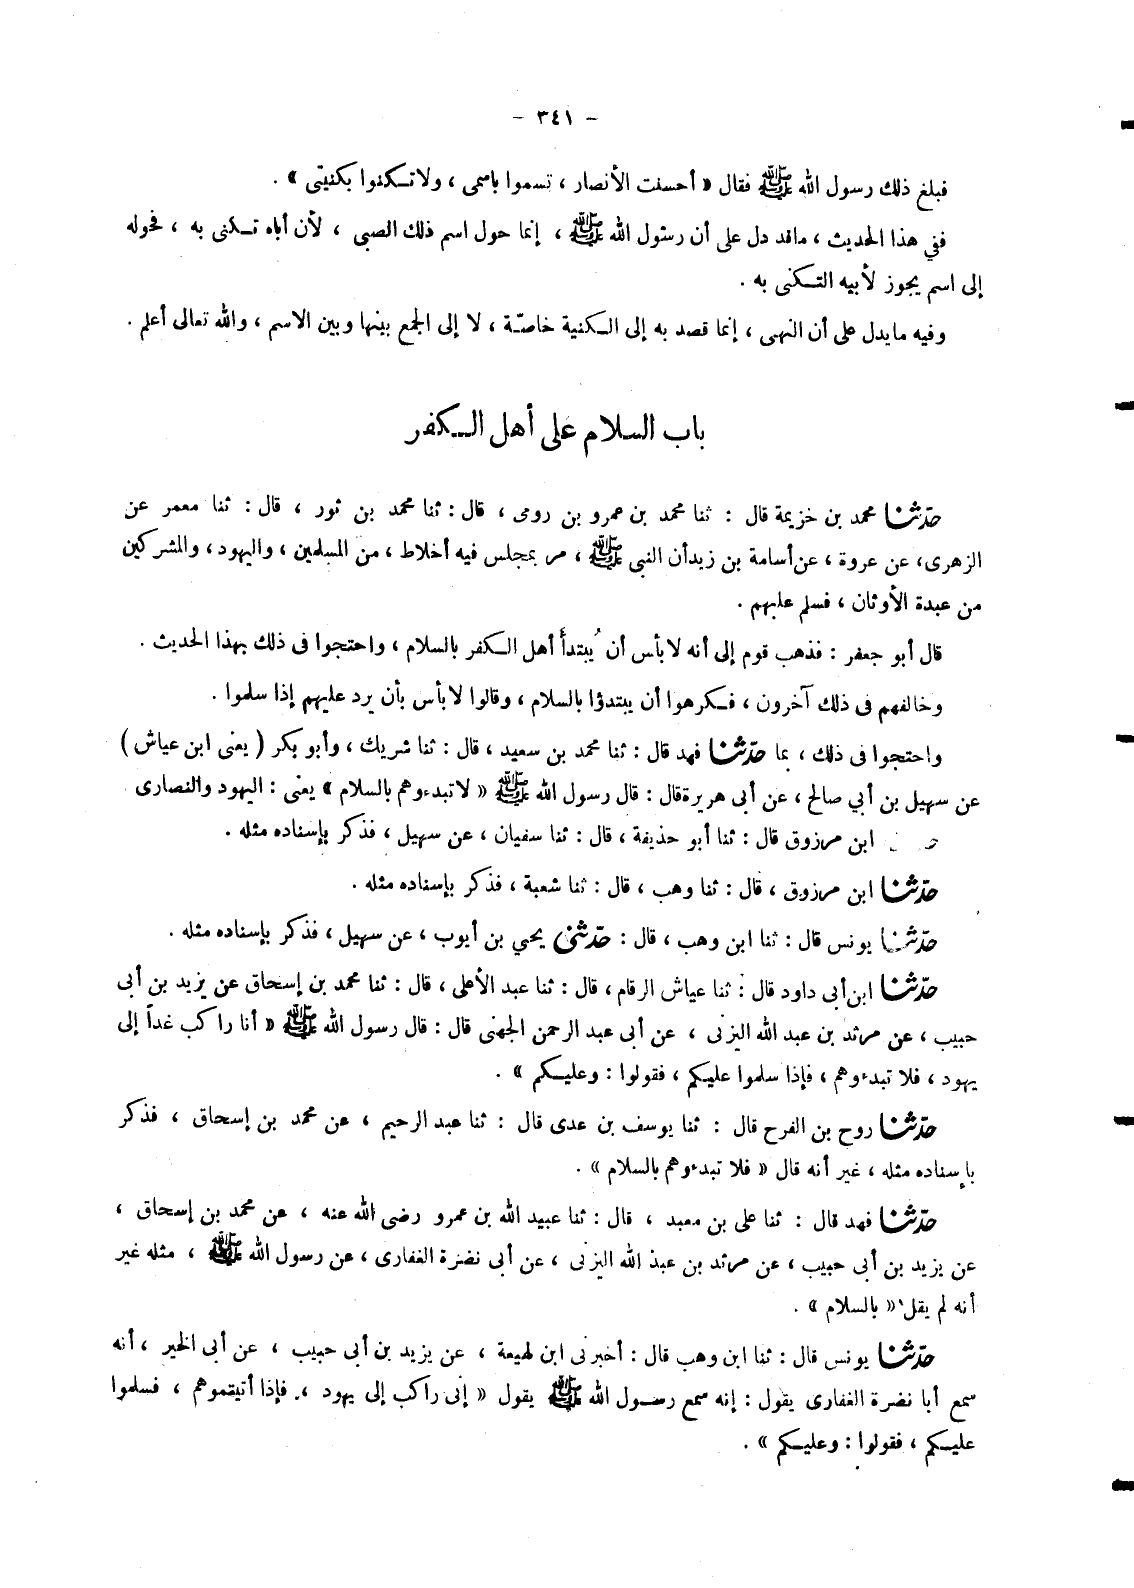 - ٣٤١ -
فبلغ ذلك رسول الله ﷺ فقال « أحسنت الأنصار ، تسموا باسمى ، ولا تكنوا بكنيتى » .
ففي هذا الحديث ، ماقد دل على أن رسول الله ﷺ ، إنما حول اسم ذلك الصبى ، لأن أباه تكنى به ، فحوله
إلى اسم يجوز لأبيه التكنى به .
وفيه مايدل على أن النهى ، إنما قصد به إلى الكنية خاصّة ، لا إلى الجمع بينها وبين الاسم ، والله تعالى أعلم .
باب السلام على أهل الكفر
حدّثنا محمد بن خزيمة قال : ثنا محمد بن عمرو بن رومى ، قال : ثنا محمد بن ثور ، قال : ثنا معمر عن
الزهرى، عن عروة ، عن أسامة بن زيد أن النبى ﷺ ، مر بمجلس فيه أخلاط ، من المسلمين ، واليهود ، والمشركين
من عبدة الأوثان ، فسلم عليهم .
قال أبو جعفر : فذهب قوم إلى أنه لا بأس أن يُبتدأ أهل الكفر بالسلام ، واحتجوا فى ذلك بهذا الحديث .
وخالفهم فى ذلك آخرون ، فكرهوا أن يبتدؤا بالسلام ، وقالوا لا بأس بأن يرد عليهم إذا سلموا .
واحتجوا فى ذلك ، بما حدّثنا فهد قال : ثنا محمد بن سعيد ، قال : ثنا شريك ، وأبو بكر ( يعنى ابن عياش )
عن سهيل بن أبي صالح ، عن أبى هريرة قال : قال رسول الله ﷺ « لا تبدءوهم بالسلام » يعنى : اليهود والنصارى
ابن مرزوق قال : ثنا أبو حذيفة ، قال : ثنا سفيان ، عن سهيل ، فذكر بإسناده مثله .
حدّثنا ابن مرزوق ، قال : ثنا وهب ، قال : ثنا شعبة ، فذكر بإسناده مثله .
حدّثنا يونس قال : ثنا ابن وهب ، قال : حدّثنى يحيي بن أيوب ، عن سهيل ، فذكر بإسناده مثله .
حدّثنا ابن أبى داود قال : ثنا عياش الرقام ، قال : ثنا عبد الأعلى ، قال : ثنا محمد بن إسحاق عن يزيد بن أبى
حبيب ، عن مرثد بن عبد الله اليزنى ، عن أبى عبد الرحمن الجهنى قال : قال رسول الله ﷺ « أنا راكب غداً إلى
يهود ، فلا تبدءوهم ، فإذا سلموا عليكم ، فقولوا : وعليكم » .
حدّثنا روح بن الفرح قال : ثنا يوسف بن عدى قال : ثنا عبد الرحيم ، عن محمد بن إسحاق ، فذكر
بإسناده مثله ، غير أنه قال « فلا تبدءوهم بالسلام » .
حدّثنا فهد قال : ثنا على بن معبد ، قال : ثنا عبيد الله بن عمرو رضى الله عنه ، عن محمد بن إسحاق ،
عن يزيد بن أبى حبيب ، عن مرثد بن عبد الله اليزنى ، عن أبى نضرة الغفارى ، عن رسول الله ﷺ ، مثله غير
أنه لم يقل « بالسلام » .
حدّثنا يونس قال : ثنا ابن وهب قال : أخبرنى ابن لهيعة ، عن يزيد بن أبى حبيب ، عن أبى الخير ، أنه
سمع أبا نضرة الغفارى يقول : إنه سمع رسول الله ﷺ يقول « إنى راكب إلى يهود ، فإذا أتيتموهم ، فسلموا
عليكم ، فقولوا : وعليكم » .